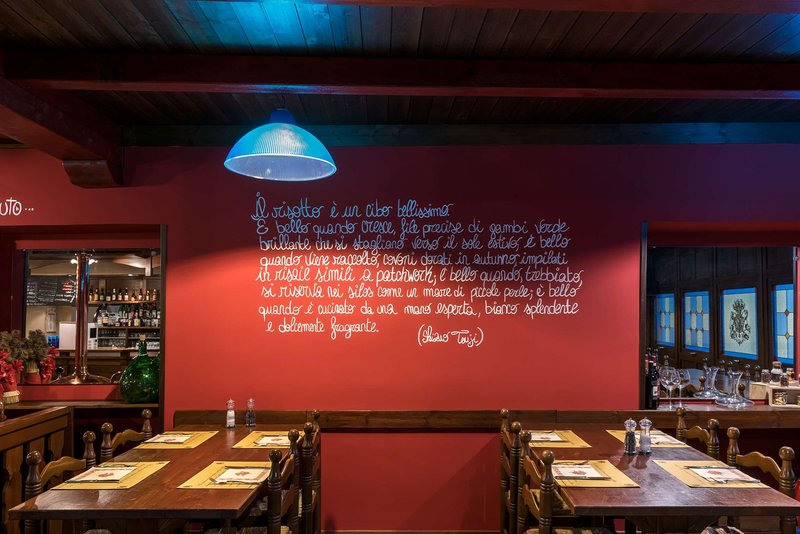 UTO...
Il risotto è un cibo bellissimo
È bello quando cresce, file precise di gambi verde
brillante che si stagliano verso il sole estivo, è bello
quando viene raccolto, covoni dorati in autunno impilati
in risaie simili a patchwork, è bello quando, trebbiato,
si riserva nei silos come un mare di piccole perle; è bello
quando è cucinato da una mano esperta, bianco splendente
e dolcemente fragrante. (Shizuo Tsuji)